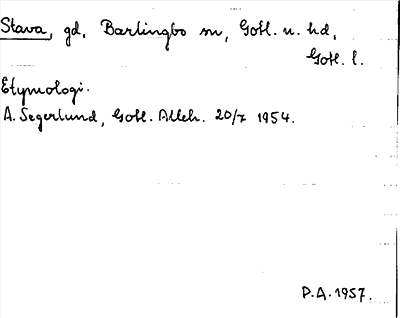 Stava, gd, Barlingbo sn, Gotl. n. hd,
Gotl. l.
Etymologi.
A. Segerlund, Gotl. Alleh. 20/7 1954.
P.A. 1957.